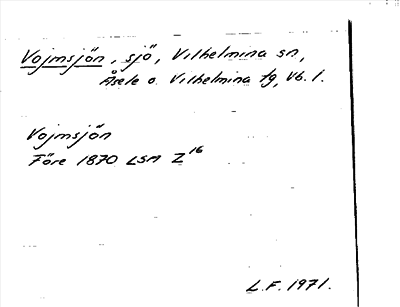 Vojmsjön, sjö, Vilhelmina sn,
Åsele o. Vilhelmina tg, Vb. l.
Vojmsjön
Före 1870 LSA Z16
L.F. 1971.